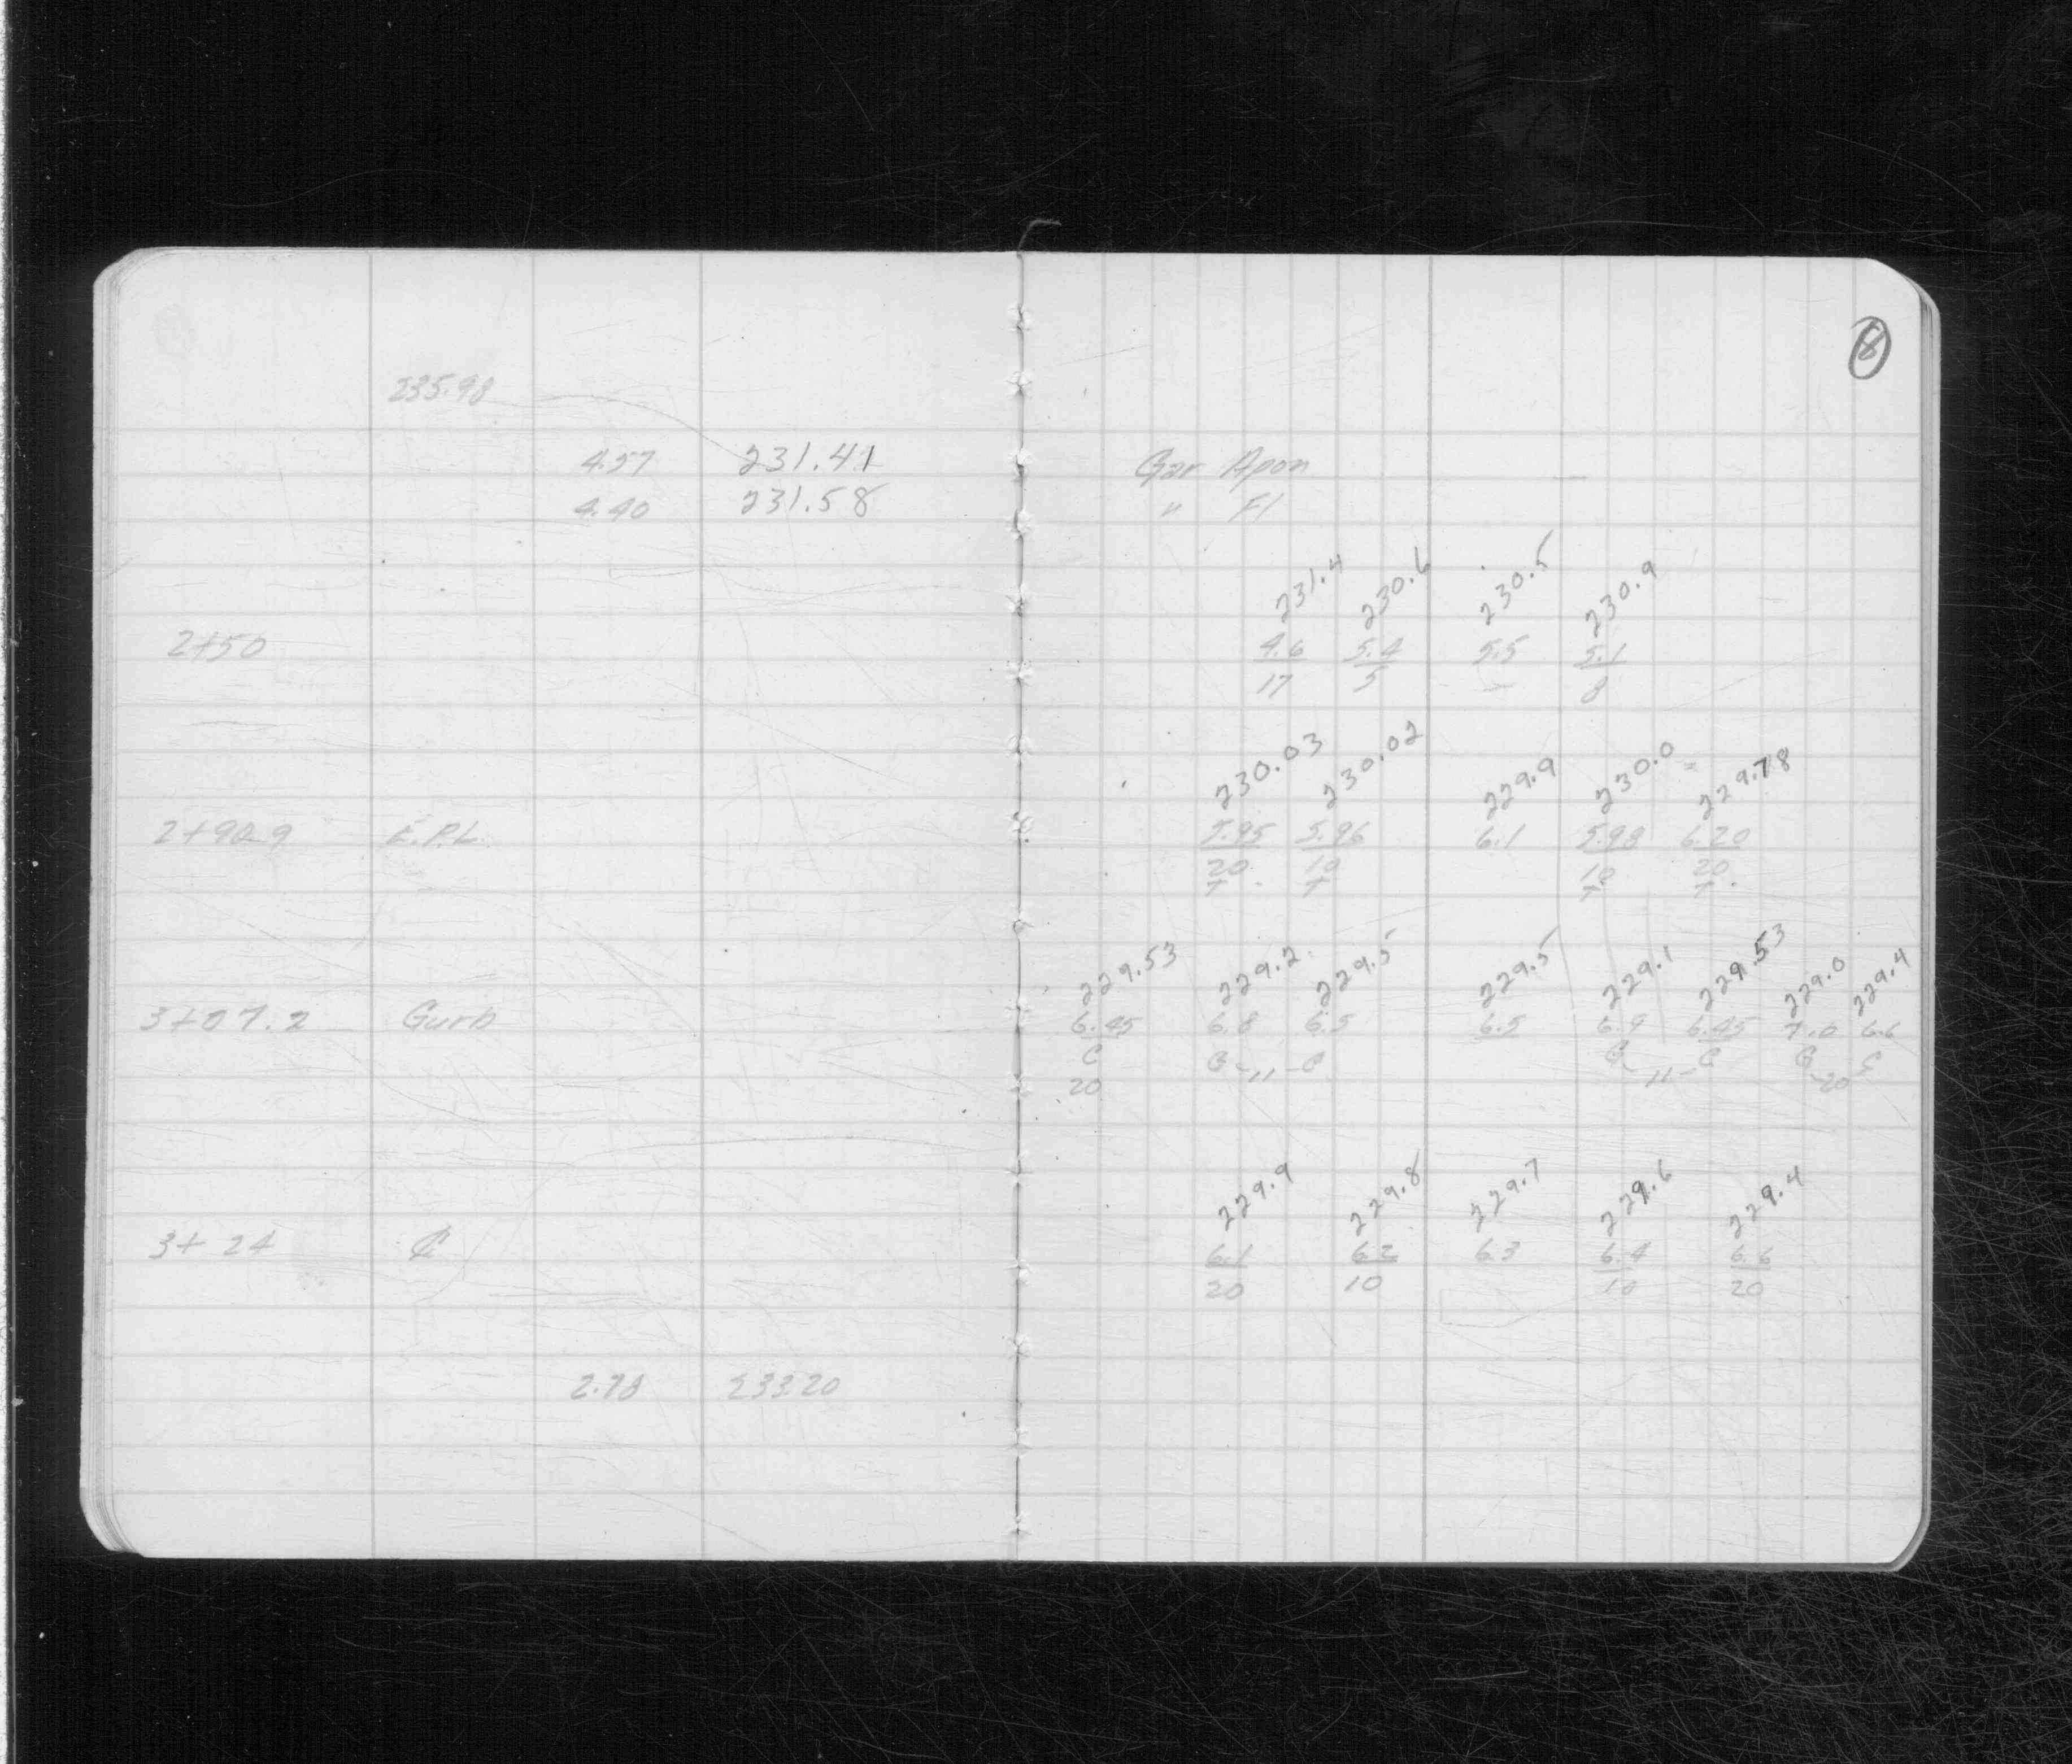 8
235.98
4.57 231.41 Gar Apon
4.40 231.58 " Fl
231.4 230.6 230.5 230.9
2+50 4.6 5.4 5.5 5.1
17 5 8
230.03 230.02 229.9 230.0 229.78
2+90.9 E.P.L. 5.95 5.96 6.1 5.98 6.20
20 10 10 20
T T T T
229.53 229.2 229.5 229.5 229.1 229.53 229.0 229.4
3+07.2 Curb 6.45 6.8 6.5 6.5 6.9 6.45 7.0 6.6
C G -11- C G -11- C G -20 C
20
229.9 229.8 229.7 229.6 229.4
3+24 ℄ 6.1 6.2 6.3 6.4 6.6
20 10 10 20
2.78 233.20